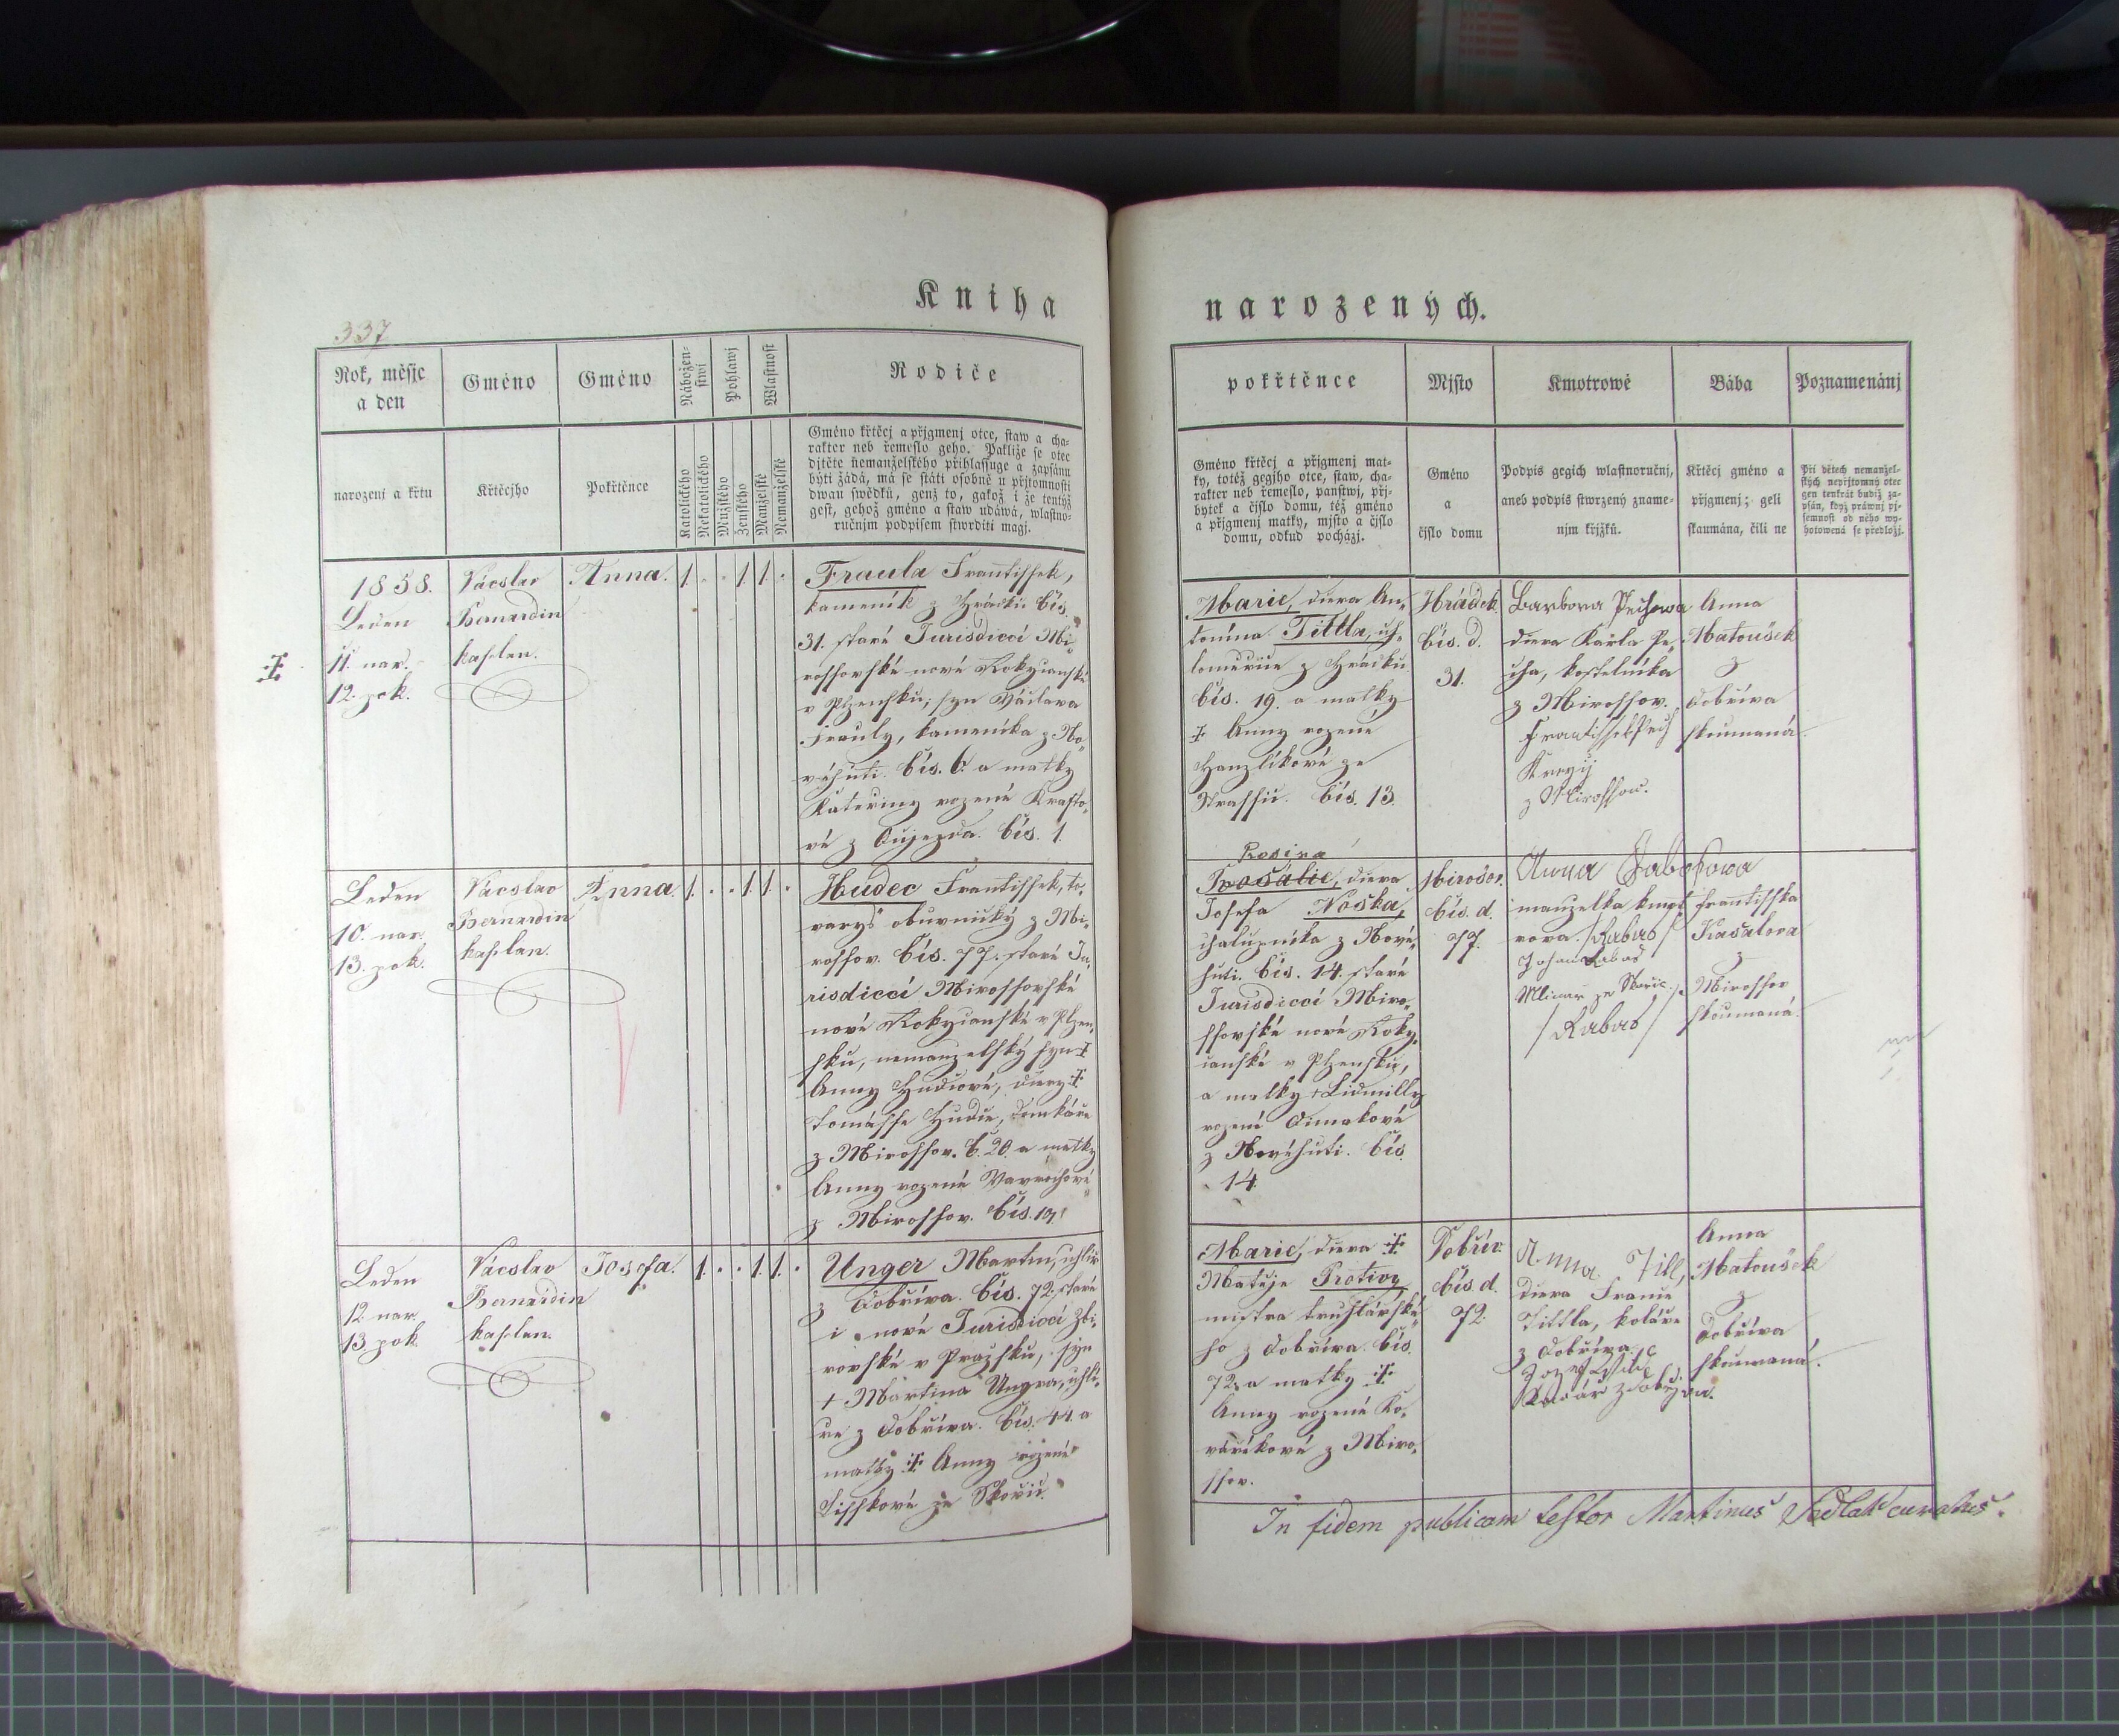 Kniha
337
Rok, měsjc
a den
Gméno
Gméno
Nábožen-
stwj
Pohlawj
Wlastnost
Rodiče
narozenj a křtu
Křtěcjho
Pokřtěnce
Katolického
Nekatolického
Mužského
Ženského
Manželské
Nemanželské
Gméno křtěcj a přjgmenj otce, staw a cha-
rakter neb řemeslo geho. Pakliže se otec
djtěte nemanželského přihlassuge a zapsánu
býti žádá, má se státi osobně u přjtomnosti
dwau swědků, genž to, gakož i že tentýž
gest, gehož gméno a staw udáwá, wlastno-
ručnjm podpisem stwrditi magj.
1858.
Leden
11. nar.
12. pok.
Vácslav
Bernardin
kaplan.
Anna.
1 . . 1 1 .
Fraula Frantissek,
kameník z Hrádku čís
31. staré Jurisdiccí Mi-
rossovské nové Rokycanské
v Plzensku; syn Václava
Frauly, kameníka z No-
véhuti. čís. 6. a matky
Kateřiny rozené Krafto-
vé z Oujezda. čís. 1.
Leden
10. nar.
13. pok.
Vácslav
Bernardin
kaplan.
Anna.
1 . . 1 1 .
Hudec Frantissek, to-
varyš obuvnický z Mi-
rossov. čís. 77. staré Ju-
risdiccí Mirossovské
nové Rokycanské v Plzen-
sku, nemanzelský syn ‡
Anny Hudcové, dcery ‡
Tomásse Hudce, domkáře
z Mirossov. č. 20. a matky
Anny rozené Vavrochové
z Mirossov. čís. 19.
Leden
12 nar.
13. pok.
Vácslav
Bernardin
kaplan.
Josefa.
1 . . 1 1 .
Unger Martin, uhlíř
z Dobříva. čís. 72. staré
i nové Jurisdiccí Zbi-
rovské v Prazsku, syn
+ Martina Ungra, uhlí-
ře z Dobříva. čís. 44. a
matky ‡ Anny rozené
Tisskové ze Skořic.
narozených.
pokřtěnce
Mjsto
Kmotrowé
Bába
Poznamenánj
Gméno křtěcj a přjgmenj mat-
ky, totéž gegjho otce, staw, cha-
rakter neb řemeslo, panstwj, přj-
bytek a čjslo domu, též gméno
a přjgmenj matky, mjsto a čjslo
domu, odkud pocházj.
Gméno
a
čjslo domu
Podpis gegich wlastnoručnj,
aneb podpis stwrzený zname-
njm křjžků.
Křtěcj gméno a
přjgmenj; geli
skaumána, čili ne
Při dětech nemanžel-
ských nepřjtomný otec
gen tenkrát budiž za-
psán, když práwnj pj-
semnost od něho wy-
hotowená se předložj.
Marie, dcera An-
tonína Tittla, uh-
z Hrádku.
čís. 19. a matky
‡ Anny rozené
Hanzlíkové ze
Strassic. čís. 13.
Hrádek
čís. d.
31.
Barbora Pechowa
dcera Karla Pe-
cha, kostelníka
z Mirossov.
Frantissek Pech
z Mirossow.
Anna
Matoušek
z
Dobříva
skoumaná.
Rosina
Rosalie, dcera
Josefa Noska,
chalupníka z Nové-
huti. čís. 14. staré
Jurisdiccí Miro-
ssovské nové Roky-
canské v Plzensku,
a matky + Lidmilly
rozené Cimakové
z Novéhuti. čís.
14.
Mirošov.
čís. d.
77.
Anna
manzelka
/Rabas/
Johan Rabas
Mlinar ze
/Rabas/
Frantisska
Kasalova
z
Mirossov
skoumaná.
Marie, dcera ‡
Matěje Protivy
mistra truhlářské-
ho z Dobříva. čís.
72. a matky ‡
Anny rozené Ko-
vaříkové z Miro-
ssov.
Dobřív.
čís. d.
72.
Anna Titl,
dcera France
Tittla, koláře
z Dobříva.
Anna
Matoušek
z
Dobříva
skoumaná.
In fidem publicam testor Martinus Sedlak curatus.